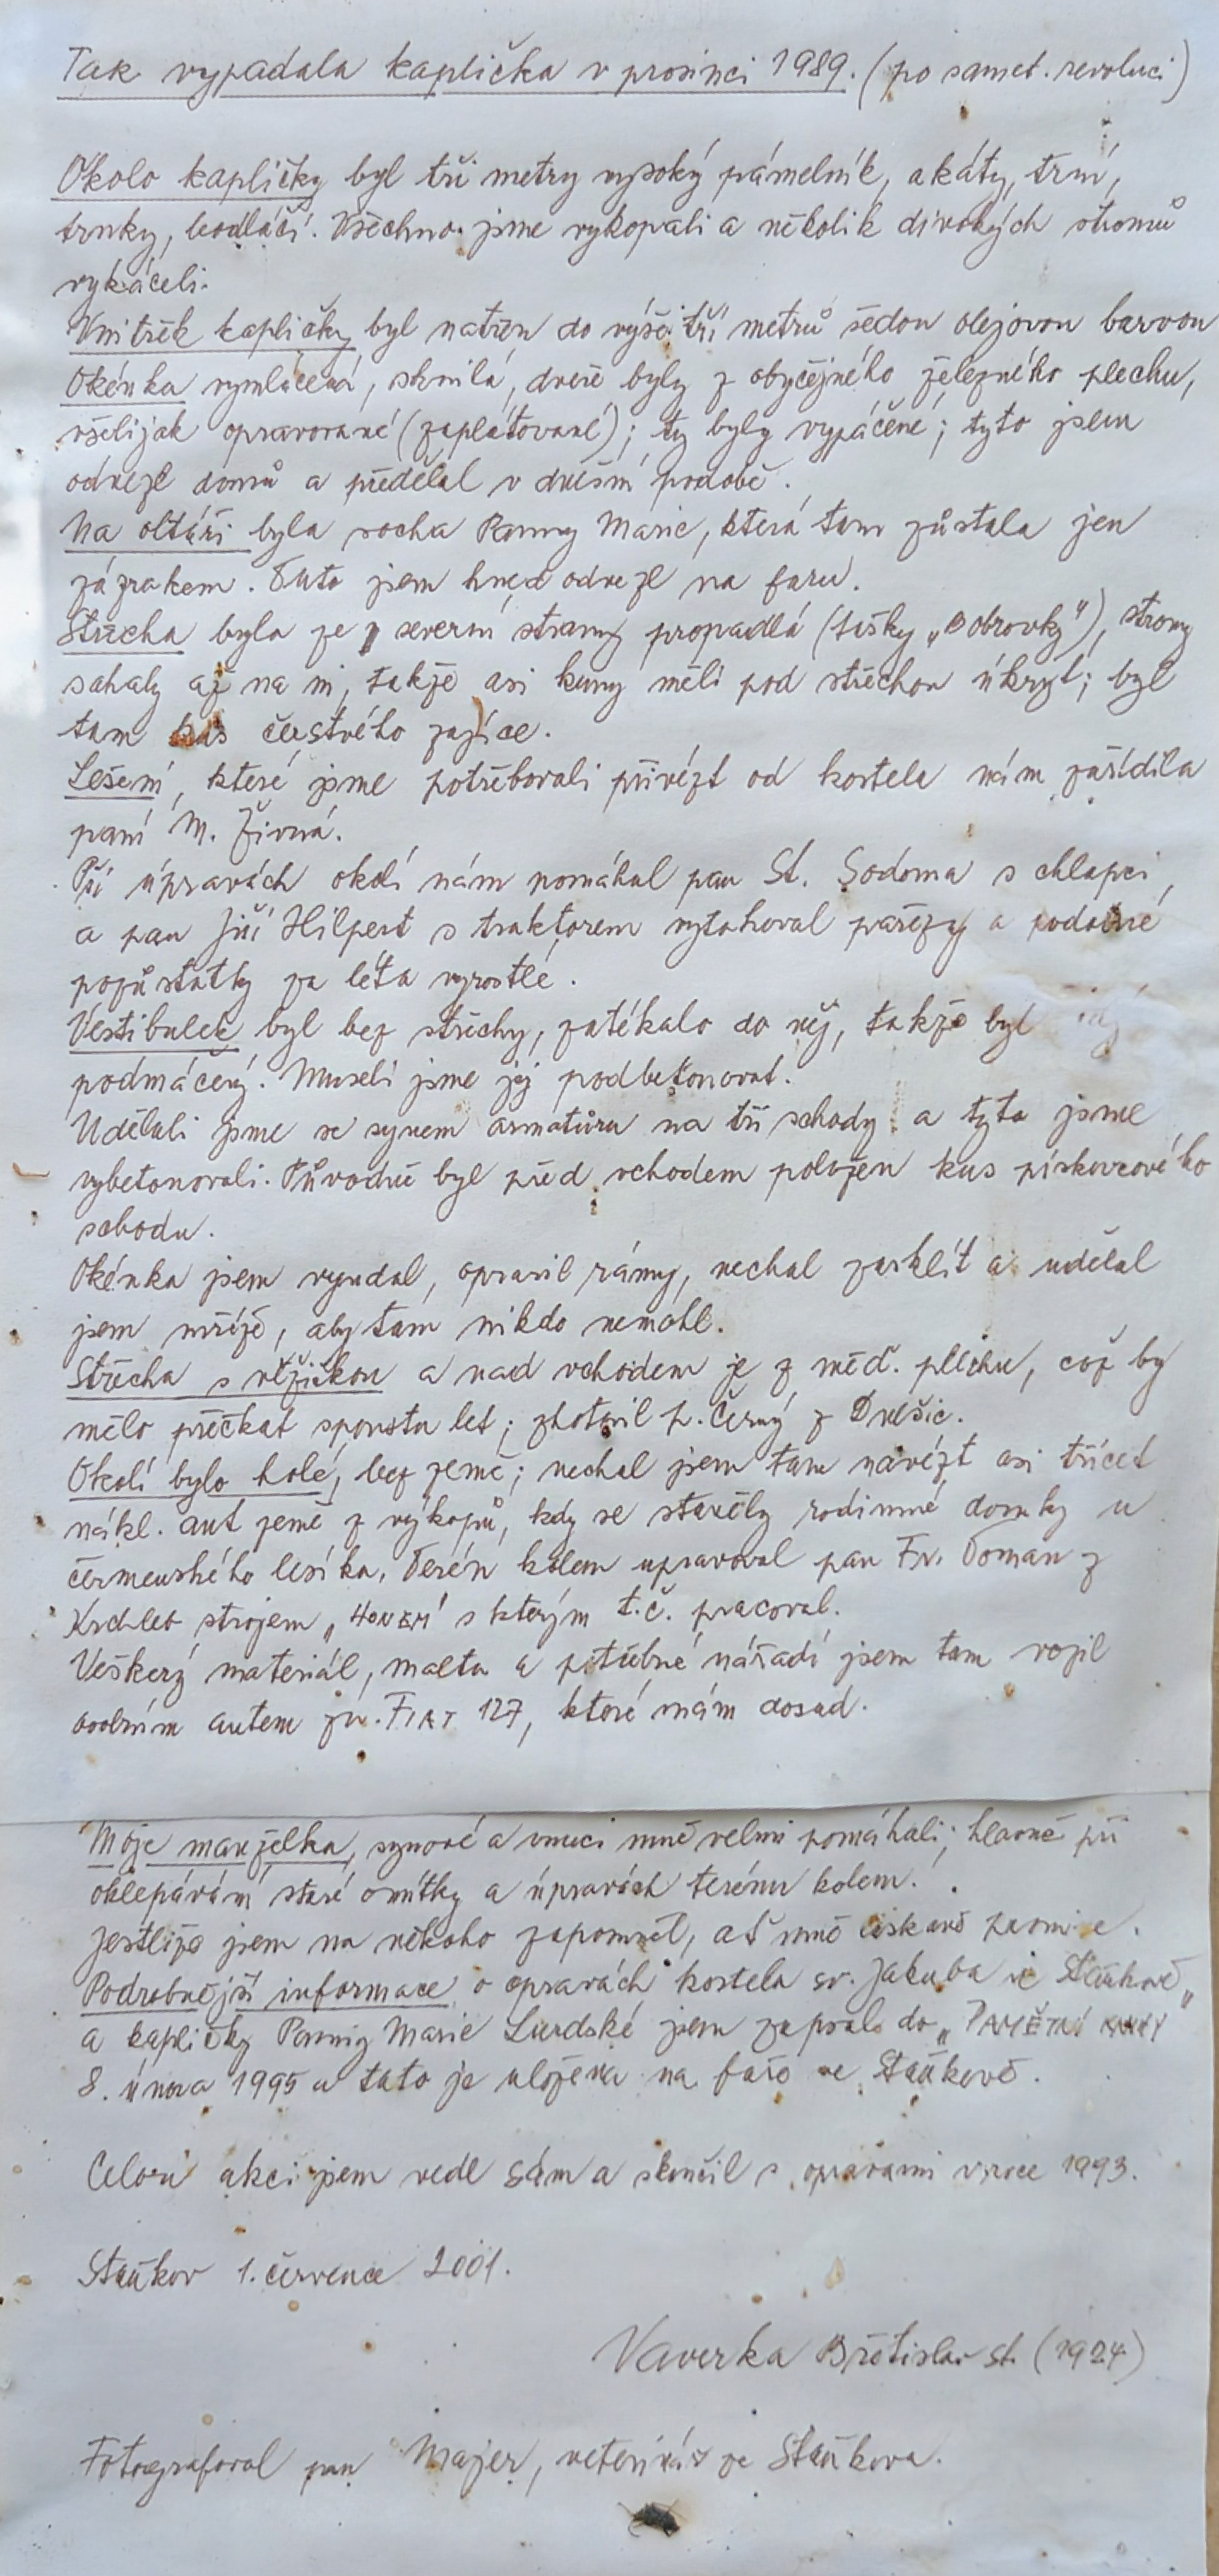 Tak vypadala kaplička v prosinci 1989. (po samet. revoluci)
Okolo kapličky byl tři metry vysoký pámelník, akáty, trní,
trnky, bodláčí. Všechno jsme vykopali a několik divokých stromů
vykáceli.
Vnitřek kapličky byl natřen do výše tří metrů šedou olejovou barvou
Okénka vymlácená, shnilá, dveře byly z obyčejného železného plechu,
všelijak opravované (zaplátované); ty byly vypáčené; tyto jsem
odvezl domů a předělal v dnešní podobě.
Na oltáři byla socha Panny Marie, která tam zůstala jen
zázrakem. Tuto jsem hned odvezl na faru.
Střecha byla ze severní strany propadlá (tašky „Bobrovky"), stromy
sahaly až na ni, takže asi kuny měli pod střechou úkryt; byl
tam kus čerstvého zajíce.
Lešení, které jsme potřebovali přivézt od kostela nám zařídila
paní M. Živná.
Při úpravách okolí nám pomáhal pan St. Sodoma s chlapci,
a pan Jiří Hilpert s traktorem vytahoval pařezy a podobné
pozůstatky za léta vyrostlé.
Vestibulek byl bez střechy, zatékalo do něj, takže byl
podmáčený. Museli jsme jej podbetonovat.
Udělali jsme se synem armatúru na tři schody a tyto jsme
vybetonovali. Původně byl před vchodem položen kus pískovcového
schodu.
Okénka jsem vyndal, opravil rámy, nechal zasklít a udělal
jsem mříže, aby tam nikdo nemohl.
Střecha s věžičkou a nad vchodem je z měď. plechu, což by
mělo přečkat spoustu let; zhotovil p. Černý z Dnešic.
Okolí bylo holé, bez země; nechal jsem tam navézt asi třicet
nákl. aut země z výkopů, kdy se stavěly rodinné domky u
čermenského lesíka. Terén kolem upravoval pan Fr. Toman z
Krchleb strojem „HONEM" s kterým t.č. pracoval.
Veškerý materiál, maltu a potřebné nářadí jsem tam vozil
osobním autem zn. FIAT 127, které mám dosud.
Moje manželka, synové a vnuci mně velmi pomáhali; hlavně při
oklepávání staré omítky a úpravách terénu kolem.
Jestliže jsem na někoho zapomněl, ať mně laskavě promine.
Podrobnější informace o opravách kostela sv. Jakuba ve Staňkově
a kapličky Panny Marie Lurdské jsem zapsal do „PAMĚTNÍ KNIHY"
8. února 1995 a tato je uložena na faře ve Staňkově.
Celou akci jsem vedl sám a skončil s opravami v roce 1993.
Staňkov 1. července 2001.
Vaverka Břetislav st. (1924)
Fotografoval pan Majer, veterinář ze Staňkova.